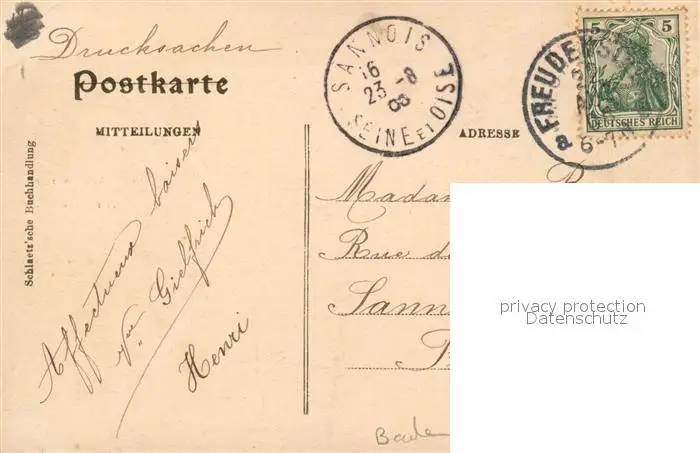 Drucksachen
Postkarte
MITTEILUNGEN
ADRESSE
Schlaetz'sche Buchhandlung
SANNOIS
16
23 -8
08
SEINE ET OISE
FREUDENS
a 6-7
5 5
DEUTSCHES REICH
Affectueux baisers
Gielfrich
Henri
Madam
Rue d
Sann
privacy protection
Datenschutz
Bade